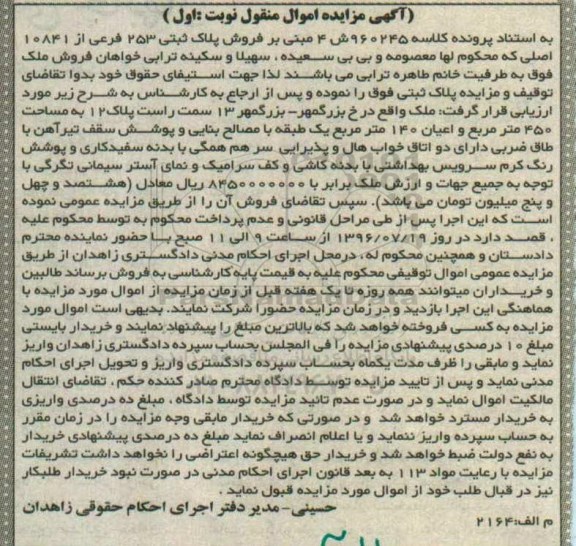 (آگهی مزایده اموال منقول نوبت :اول )
به استناد پرونده کلاسه ۹۶۰۲۴۵ش ۴ مبنی بر فروش پلاک ثبتی ۲۵۳ فرعی از ۱۰۸۴۱
اصلی که محکوم لها معصومه و بی بی سعیده ، سهیلا و سکینه ترابی خواهان فروش ملک
فوق به طرفیت خانم طاهره ترابی می باشند لذا جهت استیفای حقوق خود بدوا تقاضای
توقیف و مزایده پلاک ثبتی فوق را نموده و پس از ارجاع به کارشناس به شرح زیر مورد
ارزیابی قرار گرفت: ملک واقع در خ بزرگمهر- بزرگمهر ۱۳ سمت راست پلاک۱۲ به مساحت
۴۵۰ متر مربع و اعیان ۱۴۰ متر مربع یک طبقه با مصالح بنایی و پوشش سقف تیرآهن با
طاق ضربی دارای دو اتاق خواب هال و پذیرایی سر هم همگی با بدنه سفیدکاری و پوشش
رنگ کرم سرویس بهداشتی با بدنه کاشی و کف سرامیک و نمای آستر سیمانی تگرگی با
توجه به جمیع جهات و ارزش ملک برابر با ۸۴۵۰۰۰۰۰۰۰ ریال معادل (هشتصد و چهل
و پنج میلیون تومان می باشد). سپس تقاضای فروش آن را از طریق مزایده عمومی نموده
است که این اجرا پس از طی مراحل قانونی و عدم پرداخت محکوم به توسط محکوم علیه
، قصد دارد در روز ۱۳۹۶/۰۷/۱۹ از ساعت ۹ الی ۱۱ صبح با حضور نماینده محترم
دادستان و همچنین محکوم له ، درمحل اجرای احکام مدنی دادگستری زاهدان از طریق
مزایده عمومی اموال توقیفی محکوم علیه به قیمت پایه کارشناسی به فروش برساند طالبین
و خریداران میتوانند همه روزه تا یک هفته قبل از زمان مزایده از اموال مورد مزایده با
هماهنگی این اجرا بازدید و در زمان مزایده حضورا شرکت نمایند. بدیهی است اموال مورد
مزایده به کسی فروخته خواهد شد که بالاترین مبلغ را پیشنهاد نمایند و خریدار بایستی
مبلغ ۱۰ درصدی پیشنهادی مزایده را فی المجلس بحساب سپرده دادگستری زاهدان واریز
نماید و مابقی را ظرف مدت یکماه بحساب سپرده دادگستری واریز و تحویل اجرای احکام
مدنی نماید و پس از تایید مزایده توسط دادگاه محترم صادر کننده حکم ، تقاضای انتقال
مالکیت اموال نماید و در صورت عدم تائید مزایده توسط دادگاه ، مبلغ ده درصدی واریزی
به خریدار مسترد خواهد شد و در صورتی که خریدار مابقی وجه مزایده را در زمان مقرر
به حساب سپرده واریز ننماید و یا اعلام انصراف نماید مبلغ ده درصدی پیشنهادی خریدار
به نفع دولت ضبط خواهد شد و خریدار حق هیچگونه اعتراضی را نخواهد داشت تشریفات
مزایده با رعایت مواد ۱۱۳ به بعد قانون اجرای احکام مدنی در صورت نبود خریدار طلبکار
نیز در قبال طلب خود از اموال مورد مزایده قبول نماید .
حسینی- مدیر دفتر اجرای احکام حقوقی زاهدان
م الف:۲۱۶۴